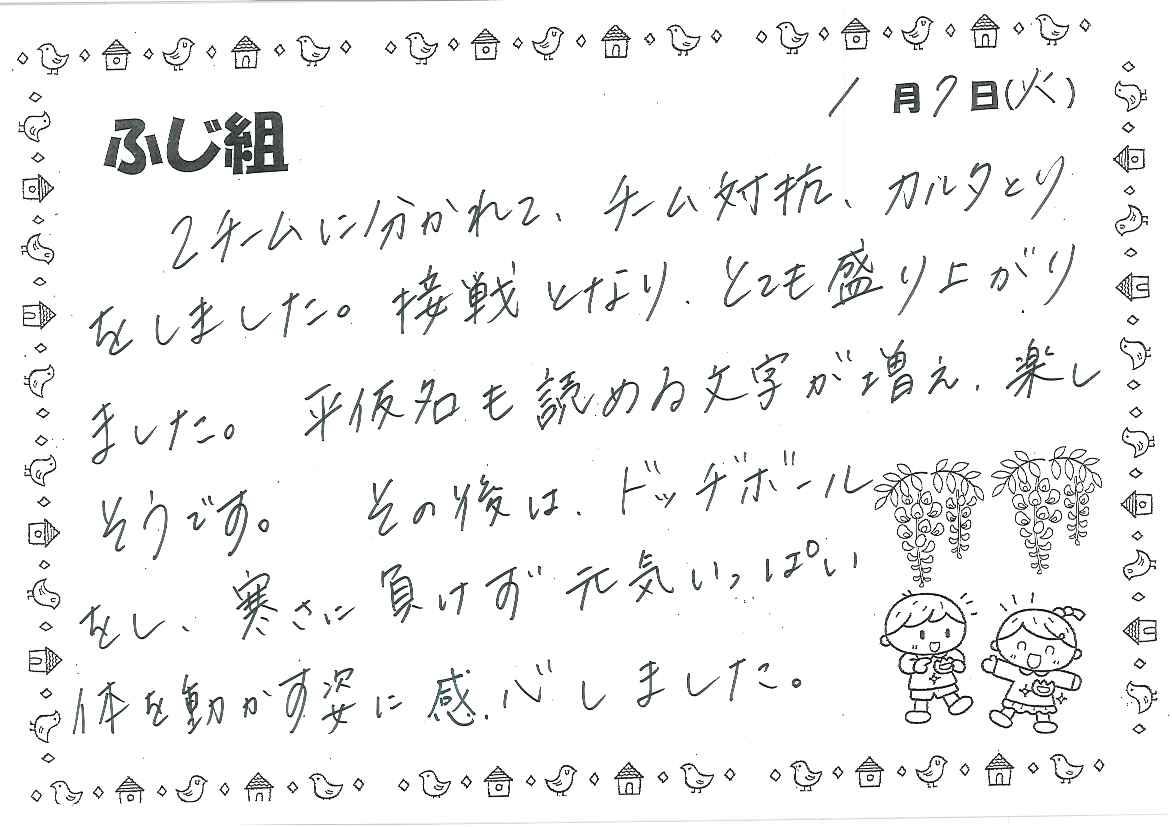 1月7日(火)
ふじ組
2チームに分かれて、チーム対抗、カルタとり
をしました。接戦となり、とても盛り上がり
ました。平仮名も読める文字が増え、楽し
そうです。その後は、ドッヂボール
をし、寒さに負けず元気いっぱい
体を動かす姿に感心しました。